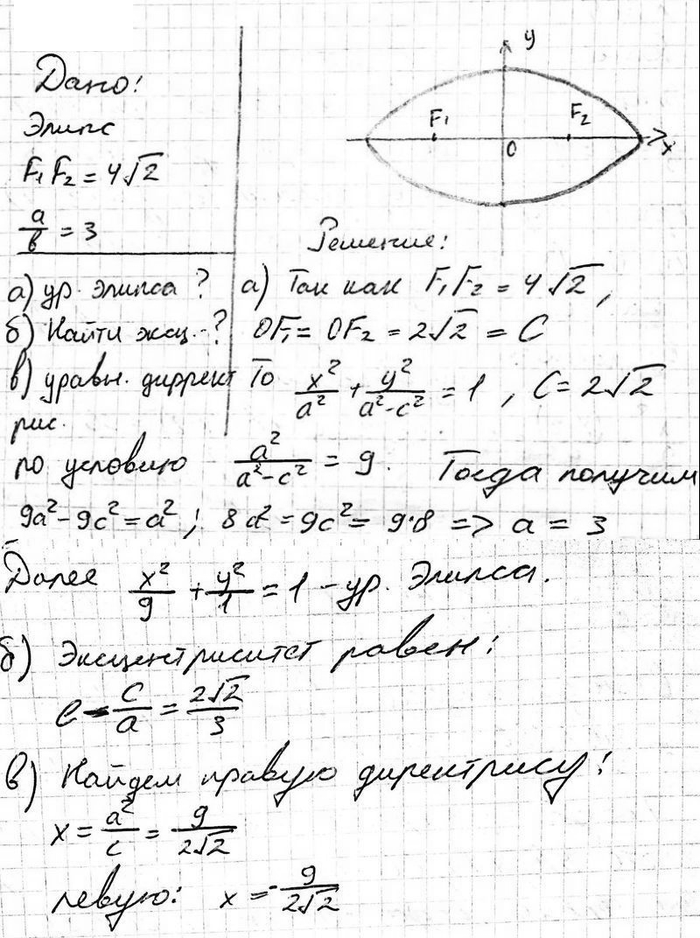 Дано:
Элипс
F₁F₂ = 4√2
a/в = 3
y
F₁
F₂
0
x
Решение:
а) ур. элипса ?
б) Найти эксц.-?
в) уравн. диррект
рис.
а) Так как F₁F₂ = 4√2,
OF₁ = OF₂ = 2√2 = C
То x²/a² + y²/(a²-c²) = 1, C = 2√2
по условию a²/(a²-c²) = 9. Тогда получим
9a²-9c² = a²; 8a² = 9c² = 9·8 => a = 3
Далее x²/9 + y²/1 = 1 - ур. Элипса.
б) Эксцентриситет равен:
e = c/a = 2√2/3
в) Найдем правую директрису:
x = a²/c = 9/2√2
левую: x = -9/2√2